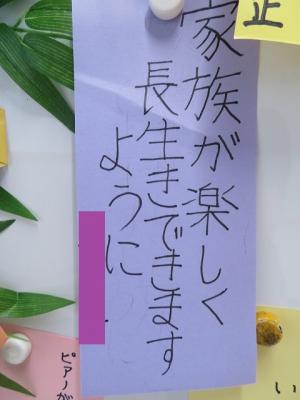 家族が楽しく
長生きできます
ように
正
ピアノが
い